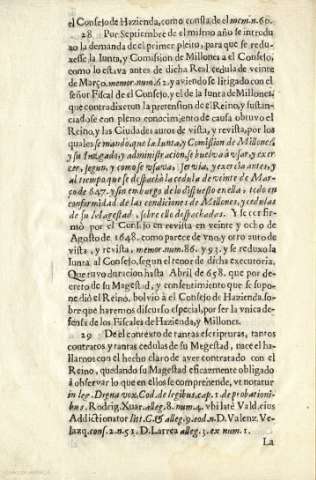 el Consejo de Hazienda, como consta del mem. n. 60.
28 Por Septiembre de el mismo año se introdu
xo la demanda de el primer pleito, para que se redu-
xesse la Iunta, y Comission de Millones a el Consejo,
como lo estava antes de dicha Real cedula de veinte
de Março, memor. num. 62. y aviendo se litigado con el
señor Fiscal de el Consejo, y el de la Iunta de Millones,
que contradixeron la pretension de el Reino, y sustan-
ciadose con pleno conocimiento de causa obtuvo el
Reino, y las Ciudades autos de vista, y revista, por los
quales se mando, que la Iunta, y Comission de Millones,
y su Iuzgado, y administracion, se buelva à usar, y exer-
cer, segun, y como se usava, servia, y exercia antes, y
al tiempo que se despachò la cedula de veinte de Mar-
ço de 647. y sin embargo de lo dispuesto en ella, todo en
conformidad de las condiciones de Millones, y cedulas
de su Magestad, sobre ello despachadas. Y se confir-
mò por el Consejo en revista en veinte y ocho de
Agosto de 1648. como parece de uno, y otro auto de
vista, y revista, memor. num. 86. y 93. y se reduxo la
Iunta al Consejo, segun el tenor de dicha executoria.
Que tuvo duracion hasta Abril de 658. que por de-
creto de su Magestad, y consentimiento que se supo-
ne diò el Reino, bolviò à el Consejo de Hazienda. sob-
bre que haremos discurso especial, por ser la vnica de-
fensa de los Fiscales de Hazienda, y Millones.
29 De el contexto de tantas escripturas, tantos
contratos y tantas cedulas de su Megestad, nace el ha-
llarnos con el hecho claro de aver contratado con el
Reino, quedando su Magestad eficazmente obligado
à observar lo que en ellos se comprehende, vt notatur
in leg. Digna vox. Cod. de legibus. cap. 1. de probationi-
bus. Rodrig. Xuar. alleg. 8. num. 4. vbi latè Vald. eius
Addictionator litt. C. & alleg. 9. eod. n. D. Valenz. Ve-
lazq. cons. 2. n. 51. D. Larrea alleg. 3. ex num. 1.
La